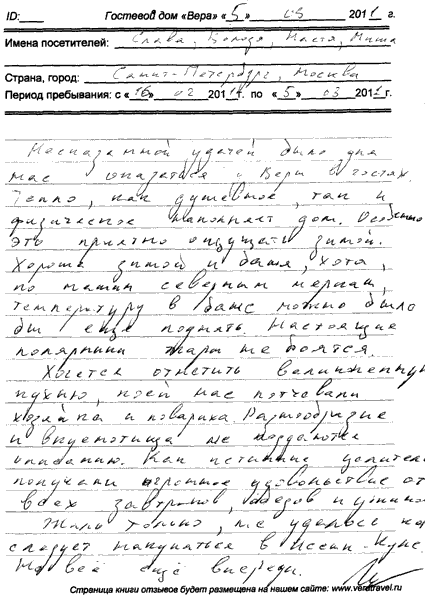 ID:___ Гостевой дом «Вера» «5» 03 2011 г.
Имена посетителей: Слава, Володя, Настя, Миша
Страна, город: Санкт-Петербург, Москва
Период пребывания: с «16» 02 2011 г. по «5» 03 2011 г.
Несказанной удачей было для
нас оказаться у Веры в гостях.
Тепло, как душевное, так и
физическое наполняет дом. Особенно
это приятно ощущать зимой.
Хороша зимой и баня, хотя,
по нашим северным меркам,
температуру в бане можно было
бы еще поднять. Настоящие
полярники жары не боятся.
Хочется отметить великолепную
кухню, коей нас потчевали
хозяйка и повариха. Разнообразие
и вкуснотища не поддаются
описанию. Как истинные ценители
получали огромное удовольствие от
всех завтраков, обедов и ужинов.
Жаль только, не удалось как
следует накупаться в Иссык-Куле.
Но всё ещё впереди.
Страница книги отзывов будет размещена на нашем сайте: www.veratravel.ru